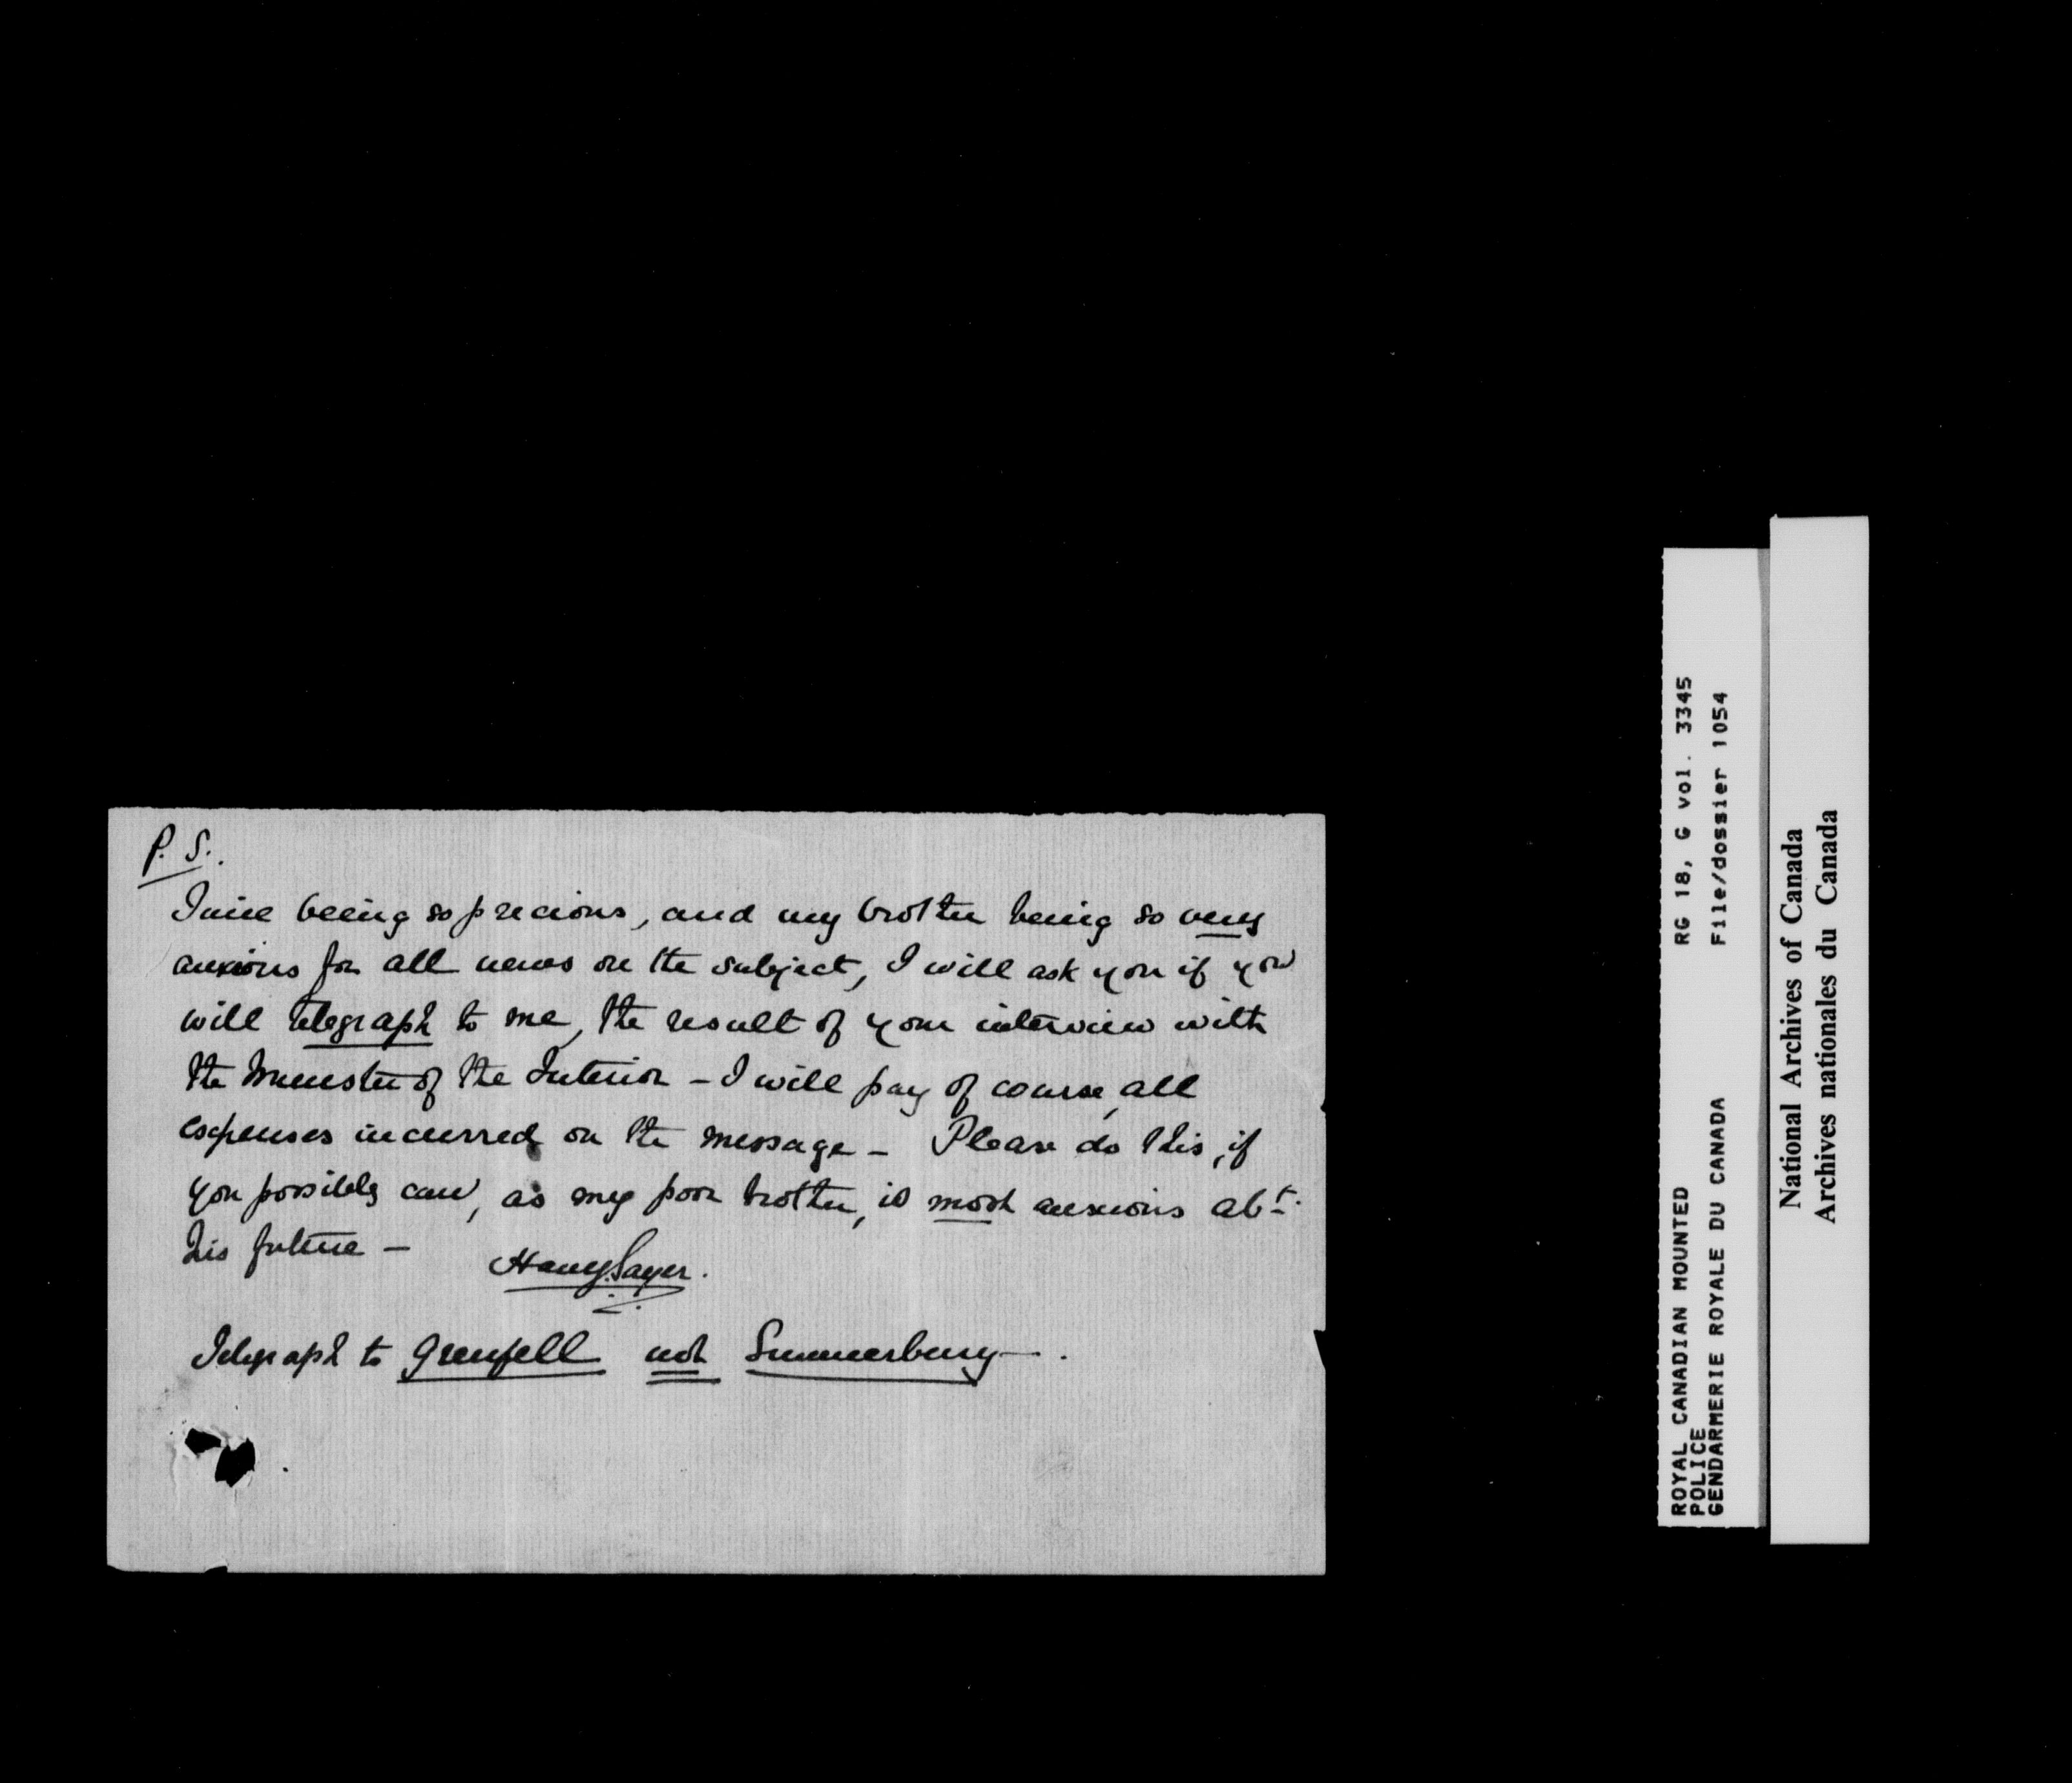 P. S.
Time being so precious, and my brother being so very
anxious for all news on the subject, I will ask you if you
will telegraph to me, the result of your interview with
the Minister of the Interior – I will pay of course, all
expenses incurred on the message – Please do this, if
you possibly can, as my poor brother, is most anxious abt.
his future –
Harry Sayer.
Telegraph to Grenfell not Summerberry.
ROYAL CANADIAN MOUNTED RG 18, G vol. 3345
POLICE
GENDARMERIE ROYALE DU CANADA File/dossier 1054
National Archives of Canada
Archives nationales du Canada